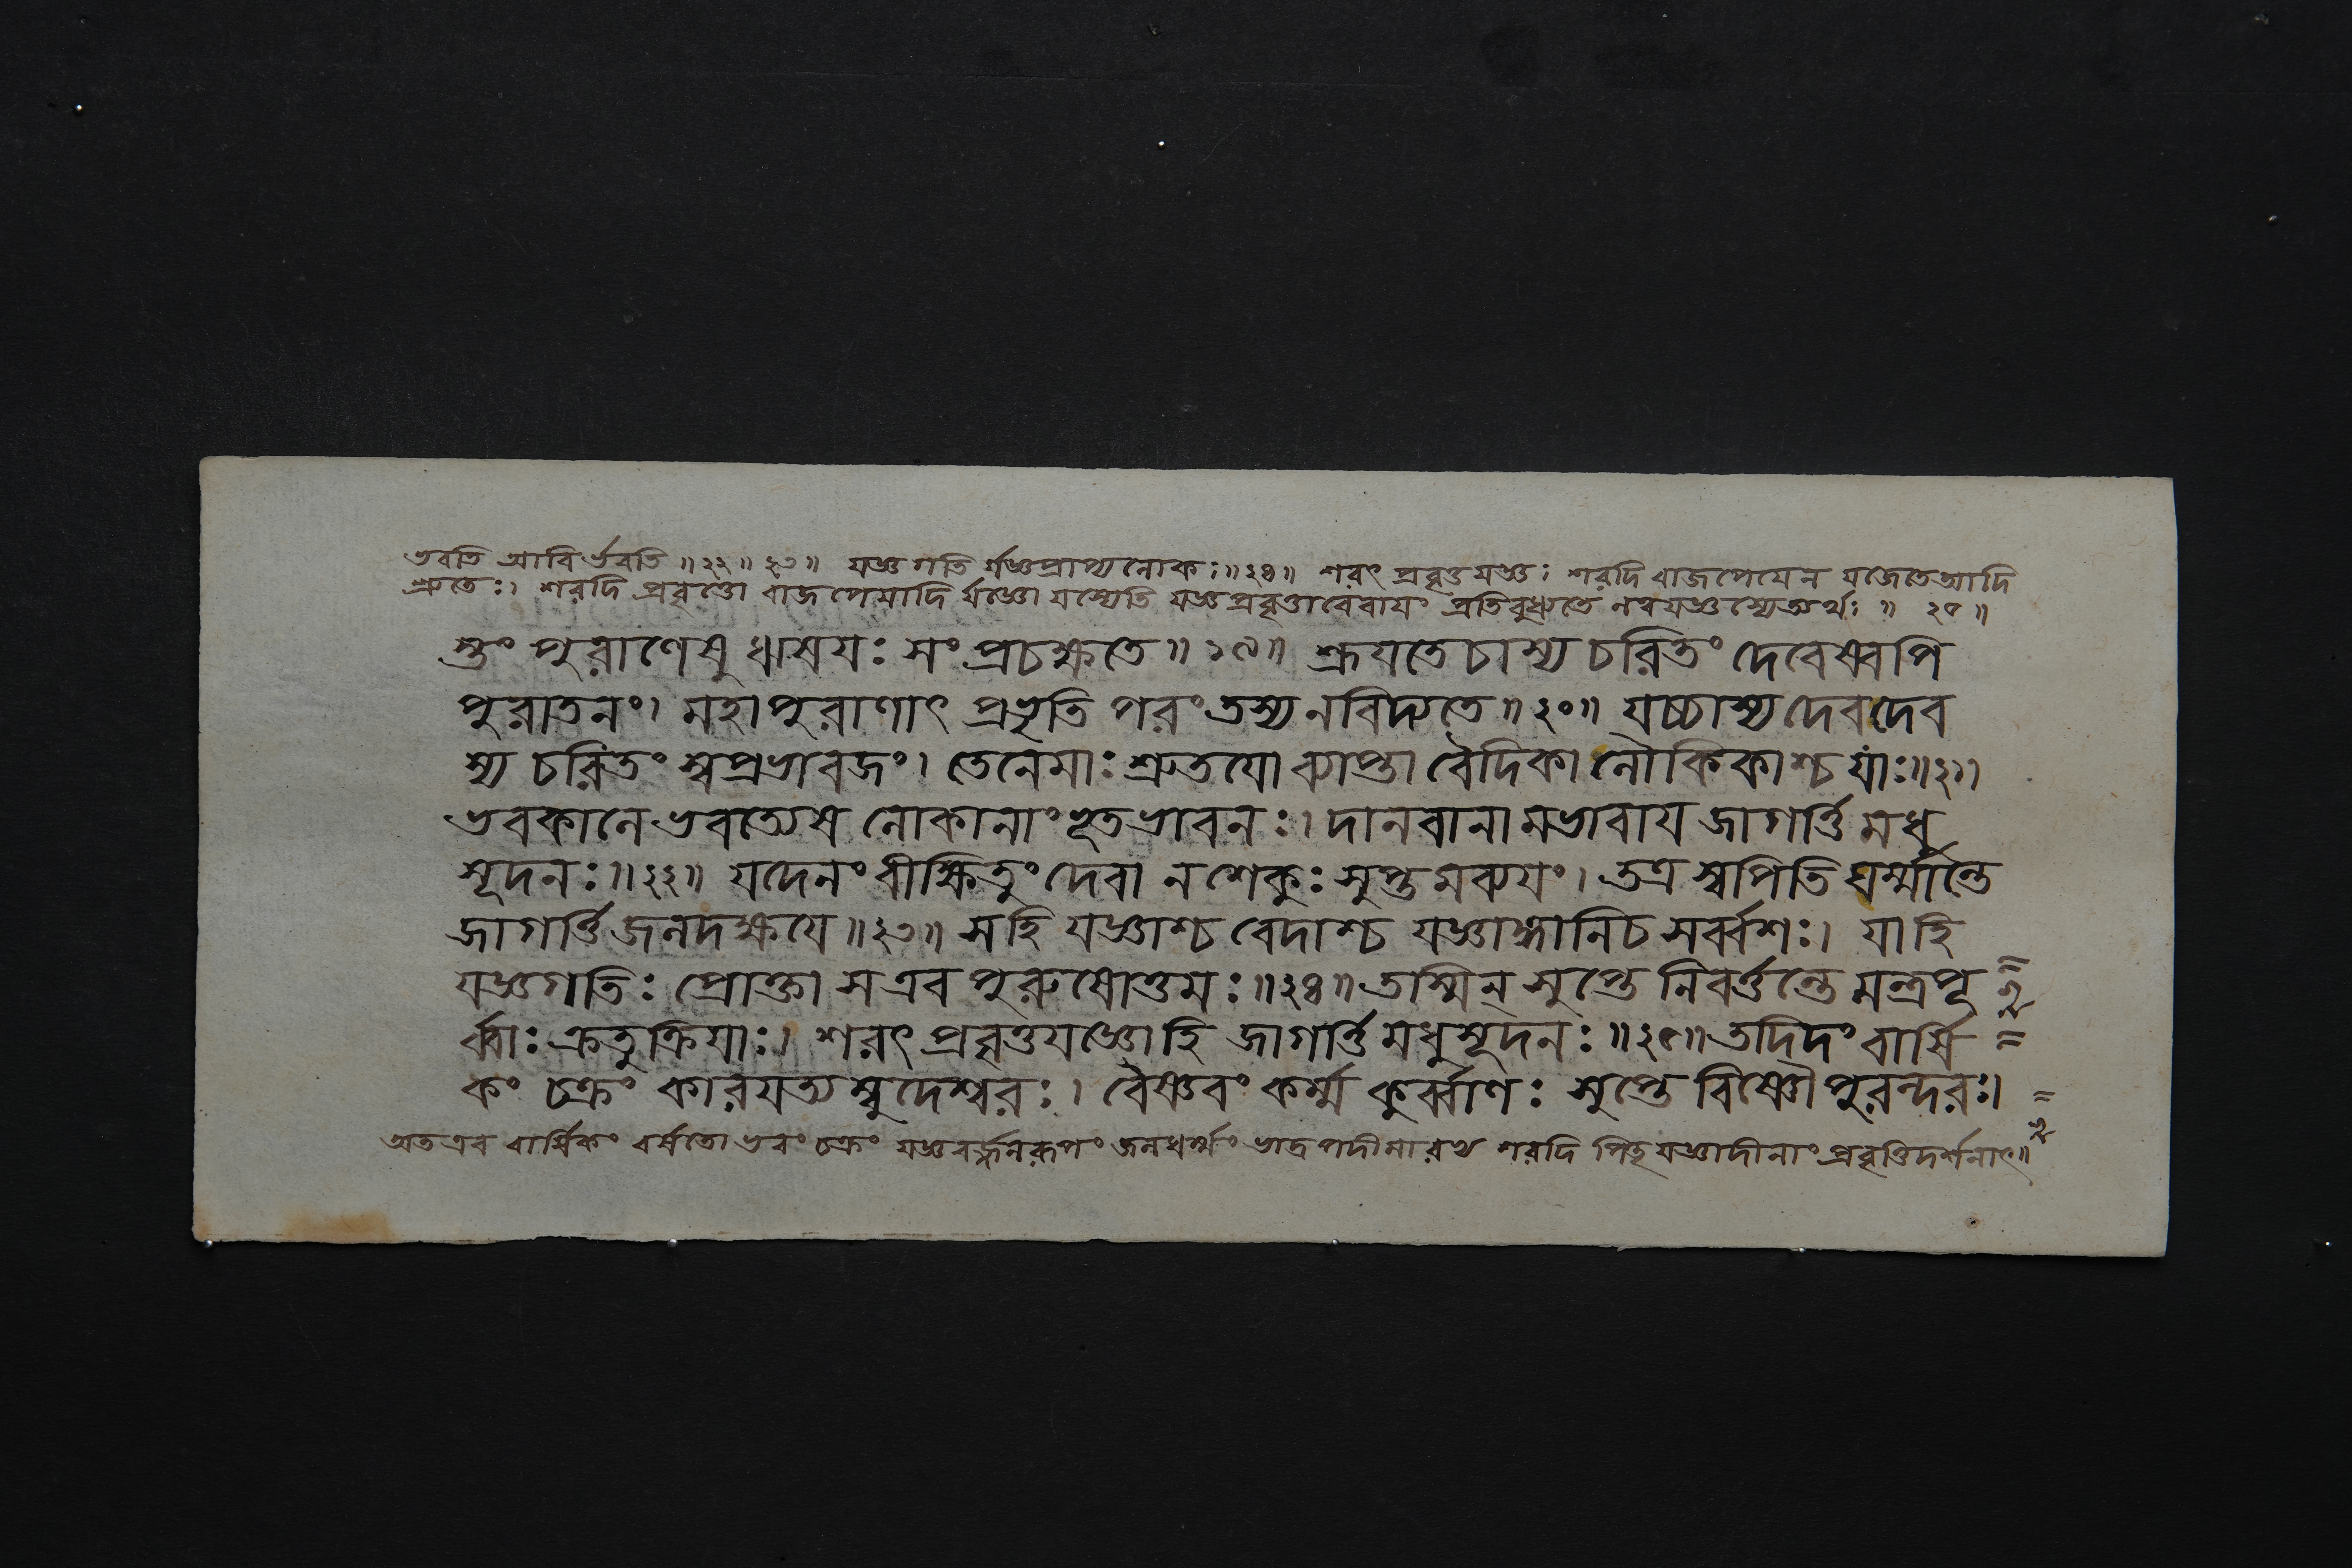 ভবতি আবির্ভবতি ॥২২॥ ২৩॥ যজ্ঞগতি র্যজ্ঞপ্রাপ্যলোকঃ॥২৪॥ শরৎ প্রবৃত্তযজ্ঞঃ শরদি বাজপেয়েন যজেতেআদি
শ্রুতেঃ। শরদি প্রবৃত্তো বাজপেয়াদি র্যজ্ঞো যস্যেতি যজ্ঞপ্রবৃত্তাবেবায়ং প্রতিবুধ্যতে নত্বযজ্ঞস্যেত্যর্থঃ ॥ ২৫॥
স্তুং পুরাণেষু ঋষয়ঃ সংপ্রচক্ষতে॥১৯॥ শ্রূয়তেচাস্য চরিতং দেবেষ্বপি
পুরাতনং। মহাপুরাণাৎ প্রভৃতি পরং তস্য নবিদ্যতে॥২০॥ যচ্চাস্য দেবদেব
স্য চরিতং স্বপ্রভাবজং। তেনেমাঃ শ্রুতয়ো ব্যাপ্তা বৈদিকা লৌকিকাশ্চ যাঃ॥২১।
ভবকালে ভবত্যেষ লোকানাং ভূতভাবনঃ। দানবানা মভাবায় জাগর্ত্তি মধু
সূদনঃ॥২২॥ যদেনং বীক্ষিতুং দেবা ন শেকুঃ সুপ্ত মব্যয়ং। তত্র স্বপিতি ঘর্ম্মান্তে
জাগর্ত্তি জলদক্ষয়ে॥২৩॥ সহি যজ্ঞাশ্চ বেদাশ্চ যজ্ঞাঙ্গানিচ সর্ব্বশঃ। যা হি
যজ্ঞগতিঃ প্রোক্তা স এব পুরুষোত্তমঃ॥২৪॥ তস্মিন্ সুপ্তে নিবর্ত্তন্তে মন্ত্রপূ
র্ব্বাঃ ক্রতুক্রিয়াঃ। শরৎ প্রবৃত্তযজ্ঞোহি জাগর্ত্তি মধুসূদনঃ॥২৫॥ তদিদং বার্ষি
কং চক্রং কারয়ত্যম্বুদেশ্বরঃ। বৈষ্ণবং কর্ম্ম কুর্ব্বাণঃ সুপ্তে বিষ্ণৌ পুরন্দরঃ।
অতএব বার্ষিকং বর্ষতো ভবং চক্রং যজ্ঞবর্জ্জনরূপং জলধর্ম্মং ভাদ্রপদীমারভ্য শরদি পিতৃযজ্ঞাদীনাং প্রবৃত্তিদর্শনাৎ॥